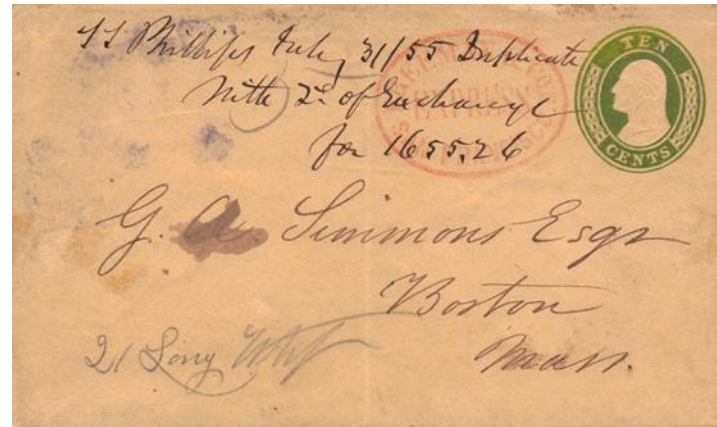 Phillips July 31/55 Duplicate
With 2d of Exchange
for 1655.26
TEN
CENTS
EXPRESS
G. A. Simmons Esqr
Boston
Mass.
21 Long